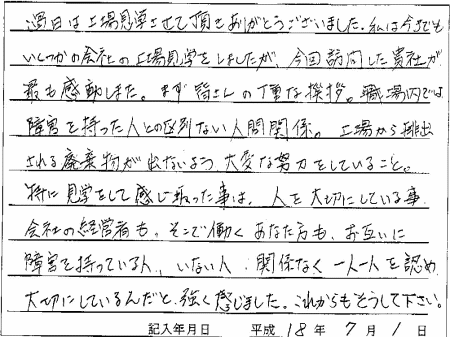 過日は工場見学させて頂きありがとうございました。私は今までも
いくつかの会社の工場見学をしましたが、今回訪問した貴社が
最も感動しました。まず皆さんの丁重な挨拶。職場内では
障害を持った人との区別ない人間関係。工場から排出
される廃棄物が出ないよう大変な努力をしていること。
特に見学をして感じ取った事は、人を大切にしている事、
会社の経営者も、そこで働くあなた方も、お互いに
障害を持っている人、いない人、関係なく一人一人を認め、
大切にしているんだと、強く感じました。これからもそうして下さい。
記入年月日 平成 18 年 7 月 1 日